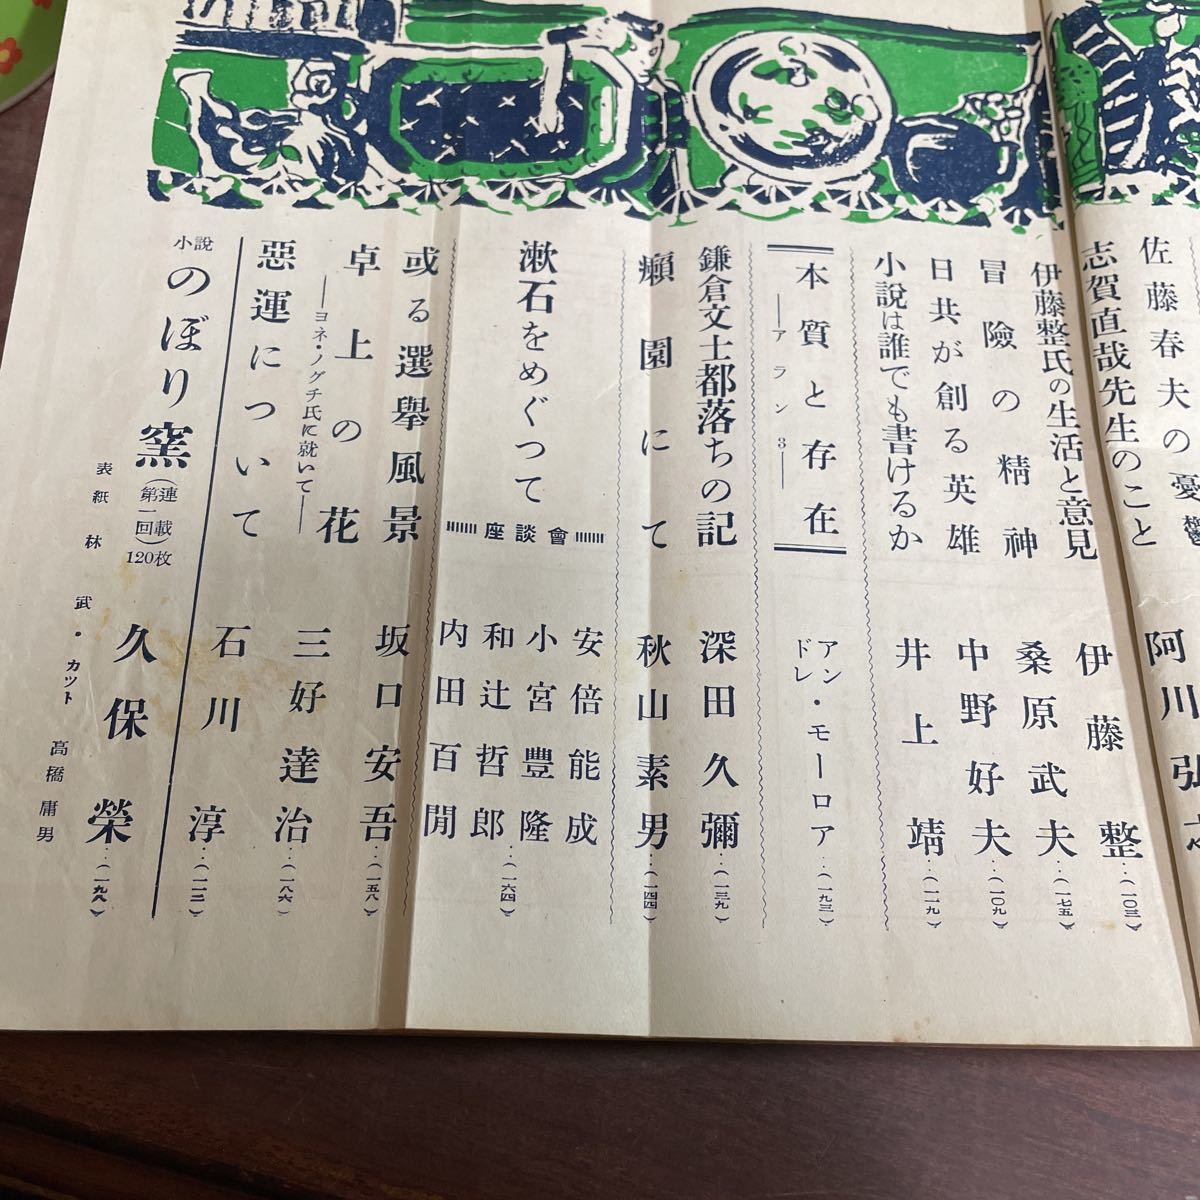 佐藤春夫の憂鬱
志賀直哉先生のこと 阿川弘
伊藤整氏の生活と意見 伊藤整‥(一〇三)
冒險の精神 桑原武夫‥(一七五)
日共が創る英雄 中野好夫‥(一〇九)
小説は誰でも書けるか 井上靖‥(一一九)
本質と存在
——アラン3——
アンドレ・モーロア‥(一九三)
鎌倉文士都落ちの記 深田久彌‥(一三九)
癩園にて 秋山素男‥(一四四)
漱石をめぐつて
座談會
安倍能成
小宮豐隆
和辻哲郎‥(一六四)
内田百閒
或る選擧風景 坂口安吾‥(一五八)
卓上の花
——ヨネ・ノグチ氏に就いて——
三好達治‥(一八六)
惡運について 石川淳‥(一一二)
小説 のぼり窯 (連載第一回)120枚 久保榮‥(一九八)
表紙 林武・カット 高橋庸男